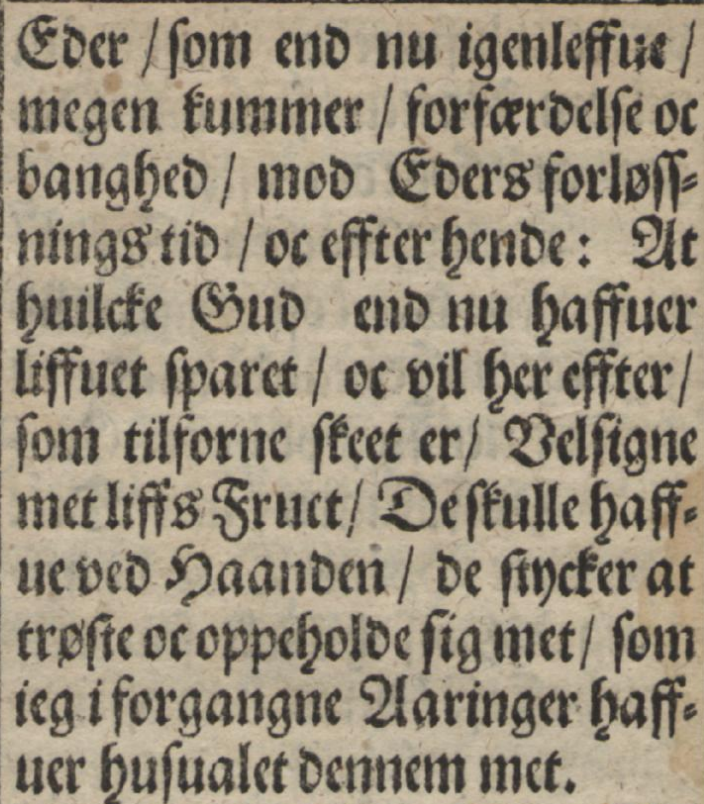 Eder / som end nu igenleffue /
megen kummer / forfærdelse oc
banghed / mod Eders forløss-
nings tid / oc effter hende: At
huilcke Gud end nu haffuer
liffuet sparet / oc vil her effter /
som tilforne skeet er / Velsigne
met liffs Fruct / De skulle haff-
ue ved Haanden / de stycker at
trøste oc oppeholde sig met / som
ieg i forgangne Aaringer haff-
uer husualet dennem met.